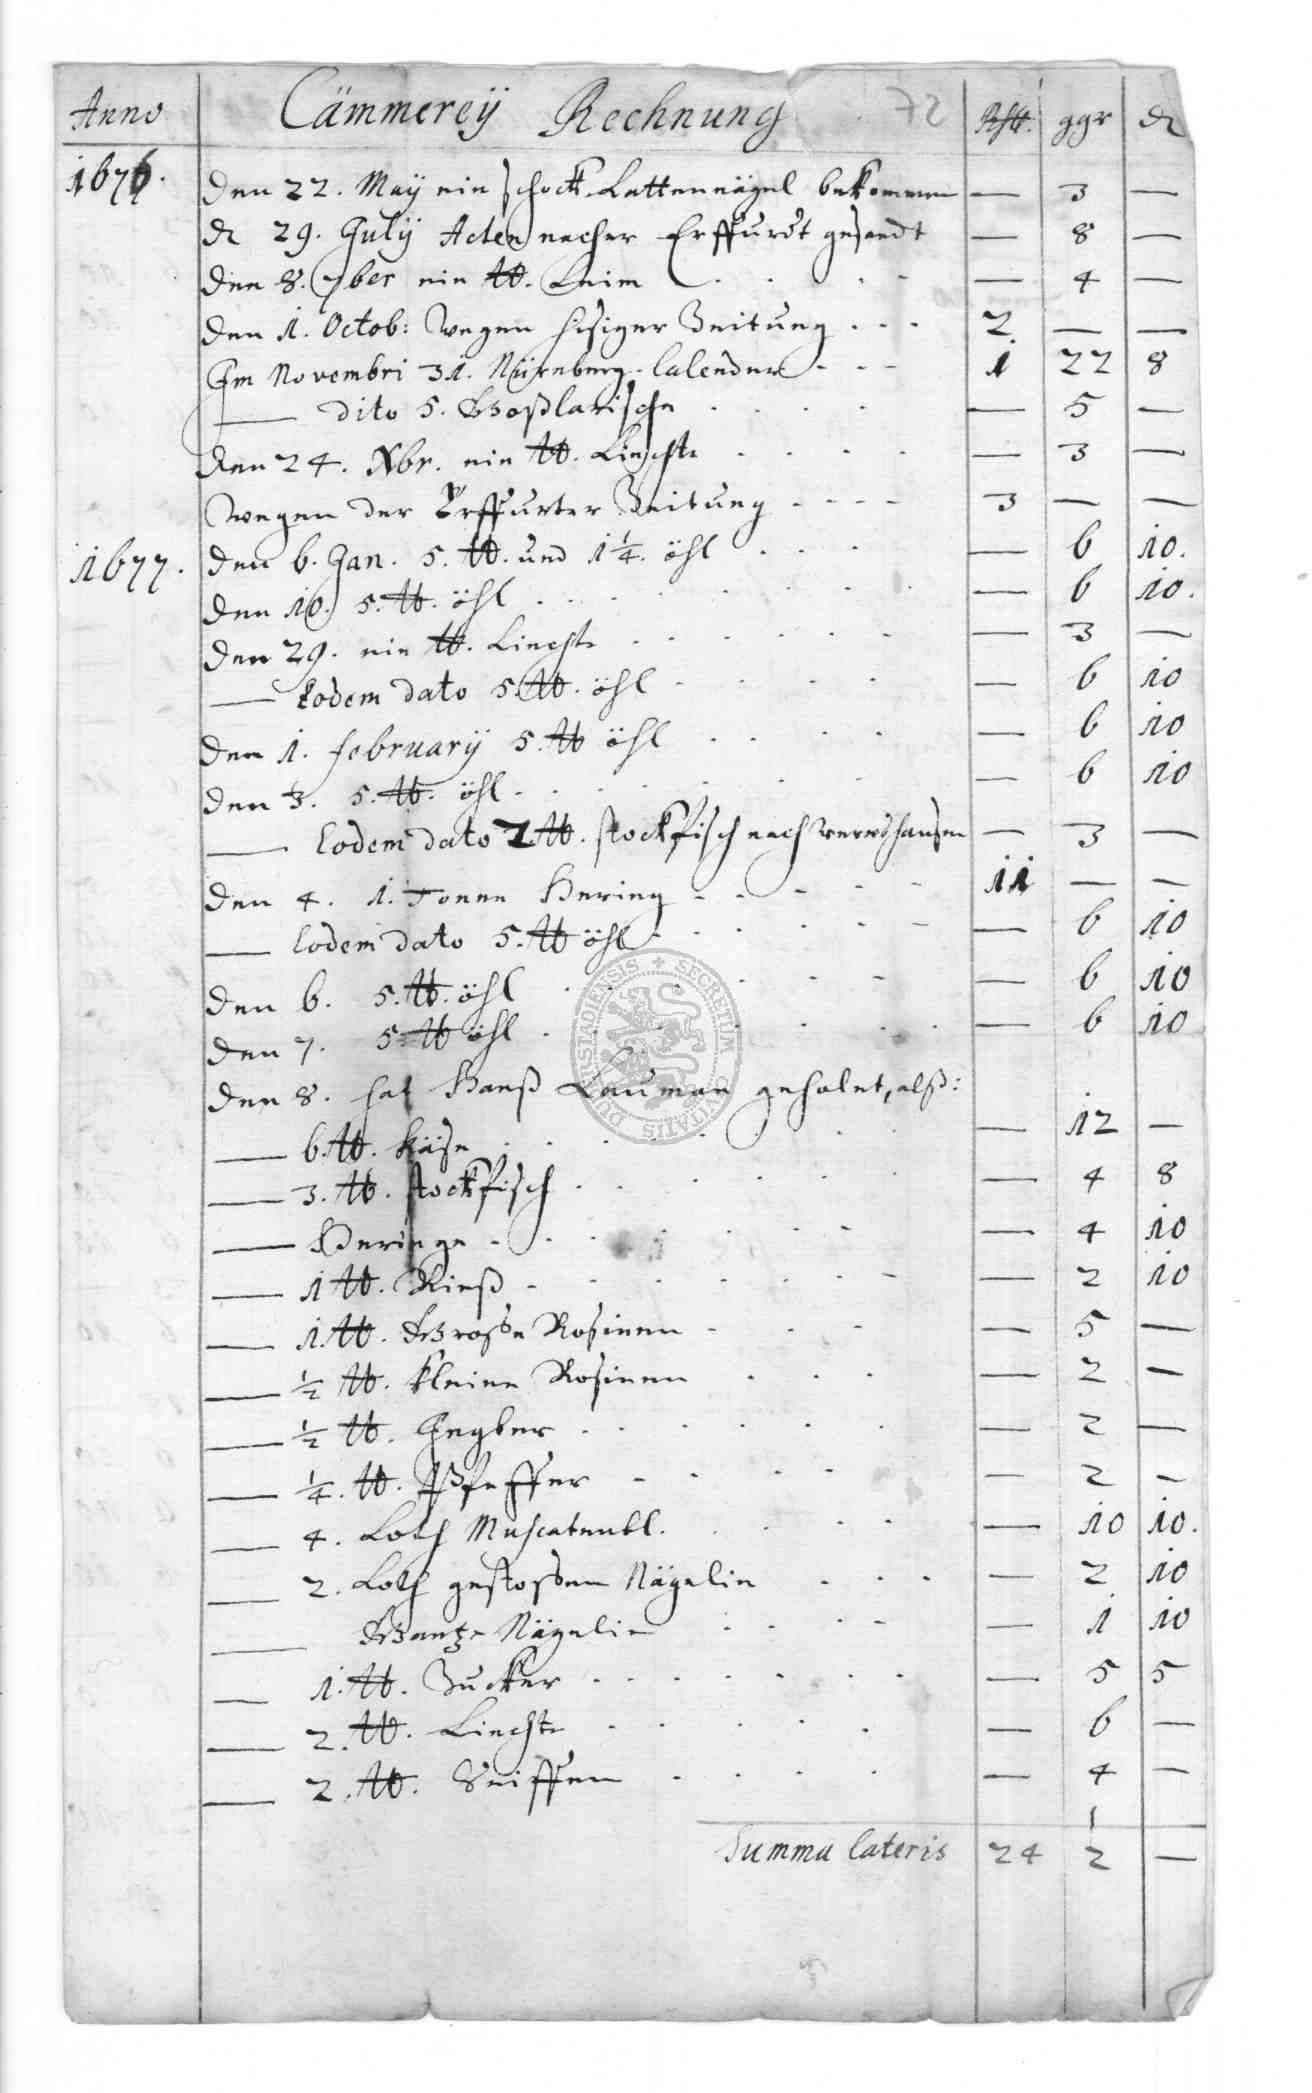 Anno Cämmereÿ Rechnung 72 Rthl. ggr d
1676. den 22. Maÿ ein schock Lattennägel bekommen — 3 —
d 29. Julÿ Acten nacher Erffurdt gesandt — 8 —
den 8. 7ber ein ℔. Leim . . . . — 4 —
den 1. Octob: wegen hisiger Zeitung . . . 2 — —
Im Novembri 31. Nürnberg. Calender . - - 1 22 8
— dito 5. Goßlarische . . . . — 5 —
den 24. Xbr. ein ℔. Liechte . . . . — 3 —
wegen der Erffurter Zeitung - - - - 3 — —
1677. den 6. Jan. 5. ℔. und 1¼. öhl . . . — 6 10.
den 10. 5. ℔. öhl . . . . . . — 6 10.
den 29. ein ℔. Liechte . . . . . — 3 —
— Eodem dato 5. ℔. öhl . . . . — 6 10
den 1. februarÿ 5. ℔ öhl . . . . — 6 10
den 3. 5. ℔. öhl . . . . . . — 6 10
— Eodem dato 2 ℔. stockfisch nach — 3 —
den 4. 1. Tonne Hering - - - - - 11 — —
— Eodem dato 5. ℔ öhl . . . . . — 6 10
den 6. 5. ℔. öhl . . . . . — 6 10
den 7. 5. ℔ öhl . . . . . . — 6 10
den 8. hat Hanß Lauman geholet, alß:
— 6. ℔. Käse . . . . . . — 12 —
— 3. ℔. stockfisch . . . . . . — 4 8
— Heringe - . . . . . - — 4 10
— 1 ℔. Rieß - . . . . . . - — 2 10
— 1. ℔. Grosse Rosinen - . . . — 5 —
— ½ ℔. kleine Rosinen . . . . — 2 —
— ½ ℔. Ingber . . . . . . — 2 —
— ¼. ℔. Pfeffer - . . . — 2 —
— 4. Loth Muscatenbl. . . . . . — 10 10.
— 2. Loth gestossen Nägelin . . . — 2 10
— Gantze Nägelin . . . . — 1 10
— 1. ℔. Zucker . . . . . . . — 5 5
— 2. ℔. Liechte . . . . . — 6 —
— 2. ℔. Seiffen . . . . . — 4 —
Summa lateris 24 2 —
SECRETUM CIVITATIS DUDERSTADIENSIS